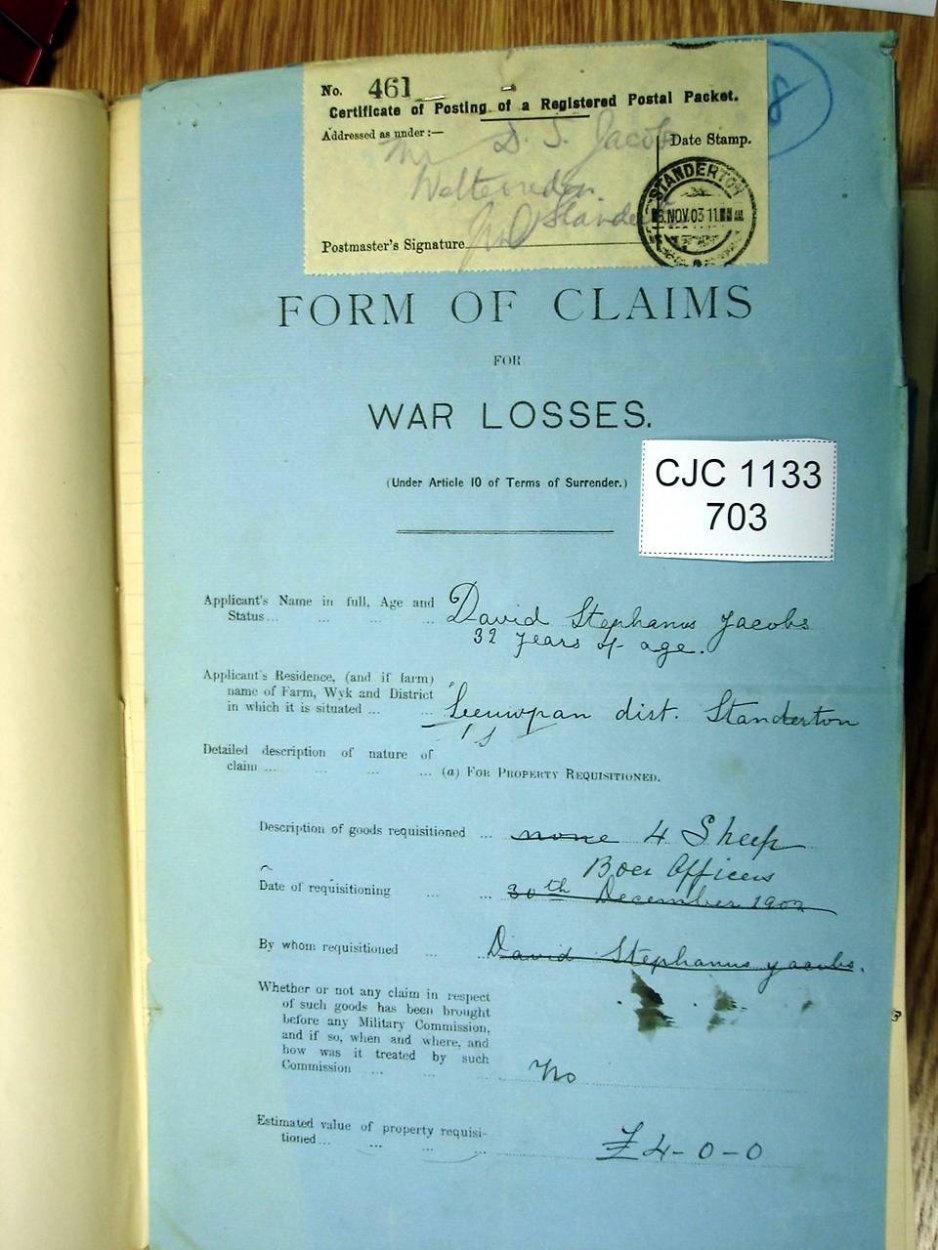 No. 461
Certificate of Posting of a Registered Postal Packet.
Addressed as under :—
Mr D. S. Jacobs
Date Stamp.
Weltevreden
Standerton
STANDERTON
NOV. 03 11
Postmaster's Signature
8
FORM OF CLAIMS
FOR
WAR LOSSES.
(Under Article 10 of Terms of Surrender.)
CJC 1133
703
Applicant's Name in full, Age and
Status... ... ... ... David Stephanus Jacobs
32 years of age.
Applicant's Residence, (and if farm)
name of Farm, Wyk and District
in which it is situated ... ... Leeuwpan dist. Standerton
Detailed description of nature of
claim ... ... ... ... (a) FOR PROPERTY REQUISITIONED.
Description of goods requisitioned ... none 4 Sheep
Boer Officers
Date of requisitioning ... ... 30th December 1902
By whom requisitioned ... ... David Stephanus Jacobs.
Whether or not any claim in respect
of such goods has been brought
before any Military Commission,
and if so, when and where, and
how was it treated by such
Commission ... ... ... No
Estimated value of property requisi-
tioned ... ... ... ... £4-0-0